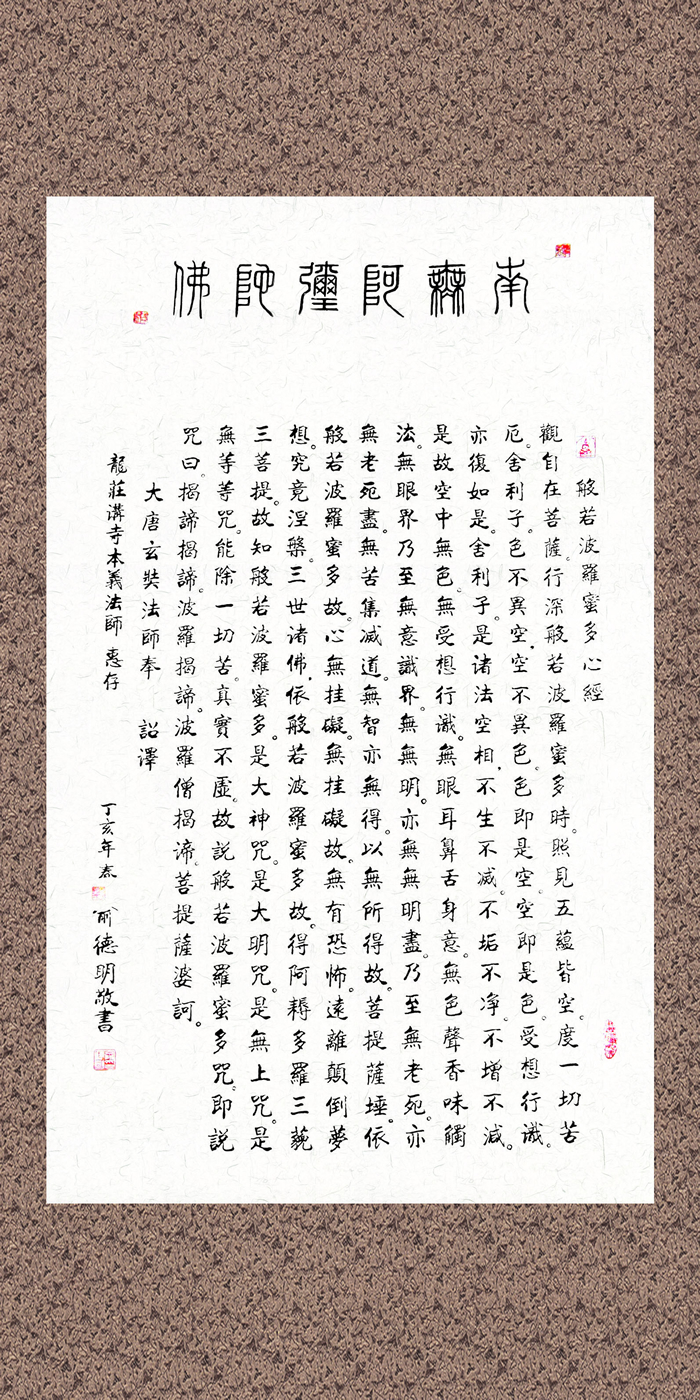 南無阿彌陀佛
般若波羅蜜多心經
觀自在菩薩。行深般若波羅蜜多時。照見五蘊皆空。度一切苦
厄。舍利子。色不異空，空不異色。色即是空。空即是色。受想行識。
亦復如是。舍利子。是诸法空相，不生不減。不垢不净。不增不減。
是故空中無色。無受想行識。無眼耳鼻舌身意。無色聲香味觸
法。無眼界乃至無意識界。無無明。亦無無明盡。乃至無老死。亦
無老死盡。無苦集減道。無智亦無得。以無所得故。菩提薩埵。依
般若波羅蜜多故。心無挂礙。無挂礙故。無有恐怖。遠離顛倒夢
想。究竟涅槃。三世诸佛，依般若波羅蜜多故。得阿耨多羅三藐
三菩提。故知般若波羅蜜多。是大神咒。是大明咒。是無上咒。是
無等等咒。能除一切苦。真實不虛。故説般若波羅蜜多咒。即説
咒曰。揭諦揭諦。波羅揭諦。波羅僧揭谛。菩提薩婆訶。
大唐玄奘法師奉 詔譯
龍莊溝寺本義法師 惠存
丁亥年
俞德明敬書